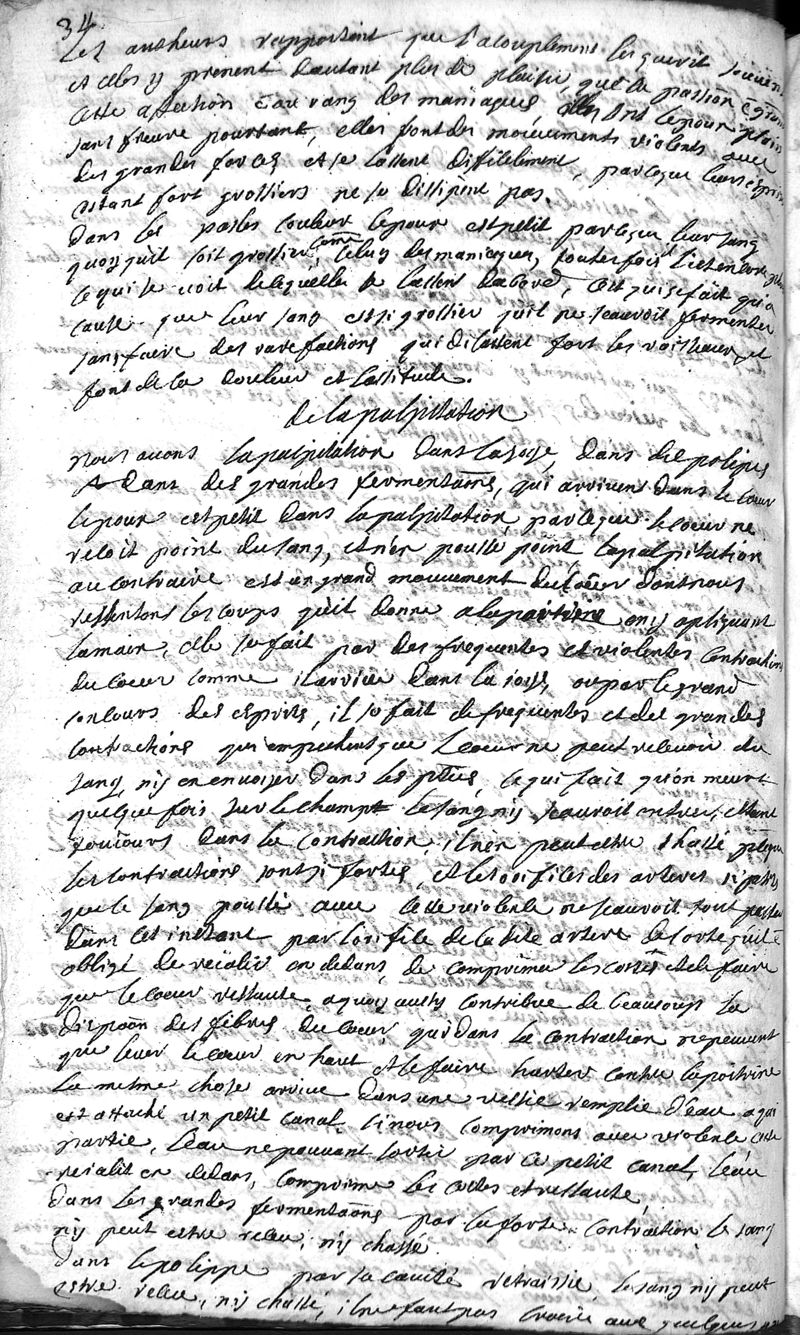 34
Les autheurs rapportent que l'acouplement les guerit souvent
et elles y prenent d'autant plus de plaisir, que la passion e gran
cette affection e au rang des maniaques elles ont le pour plein
sans fievre pourtant, elles font des mouvements violents avec
des grandes forces et se lassent difficilement, parceque leurs esprits
estant fort grossiers ne se dissipent pas.
dans les pasles couleurs le pour est petit parceque leur sang
quoy qu'il soit grossier, come celuy des maniaques, toutefois
ce qui se voit lesquelles se lassent d'abord, cecy se fait qu'a
cause que leur sang est si grossier qu'il ne scauroit fermenter
sans faire des rarefactions qui dilattent fort les vaisseaux, et
font de la douleur et lassitude.
de la palpitation
nous avons la palpitation dans la joye, dans des polipes
et dans des grandes fermentaons, qui arrivent dans le coeur
le pour est petit dans la palpitation parceque le coeur ne
recoit point du sang, et n'en pousse point la palpitation
au contraire est un grand mouvement du coeur dont nous
ressentons les coups qu'il donne a la poitrine en y apliquant
la main, elle se fait par des frequentes et violentes contractions
du coeur comme il arrive dans la joye, ou par le grand
concours des esprits, il se fait de frequentes et des grandes
contractions qui empechent que le coeur ne peut recevoir du
sang, n'y en envoyer dans les pties, ce qui fait qu'on meurt
quelque fois sur le champ le sang n'y scauroit entrer, estant
toujours dans la contraction, il n'en peut estre chassé
les contractions sont si fortes, et les orifices des arteres si petits
que le sang poussé avec cette violence ne scauroit tout passer
dans cet instant par l'orifice de la dite artere de sorte qu'il e
obligé de rejalir en dedans, de comprimer les costés et de faire
que le coeur ressaute a quoy aussy contribue de beaucoup la
dispoon des fibres du coeur qui dans la contraction ne peuvent
que lever le coeur en haut et le faire hurter contre la poitrine
la meme chose arrive dans une vessie remplie d'eau a qui
est attaché un petit canal si nous comprimons avec violence cette
partie, l'eau ne pouvant sortir par ce petit canal, l'eau
rejalit en dedans, comprime les costes et ressaute,
dans les grandes fermentaons par la forte contraction le sang
n'y peut estre receu, n'y chassé.
dans le polippe par sa cavité retraissie, le sang n'y peut
estre receu, n'y chassé, il ne faut pas croire avec quelques